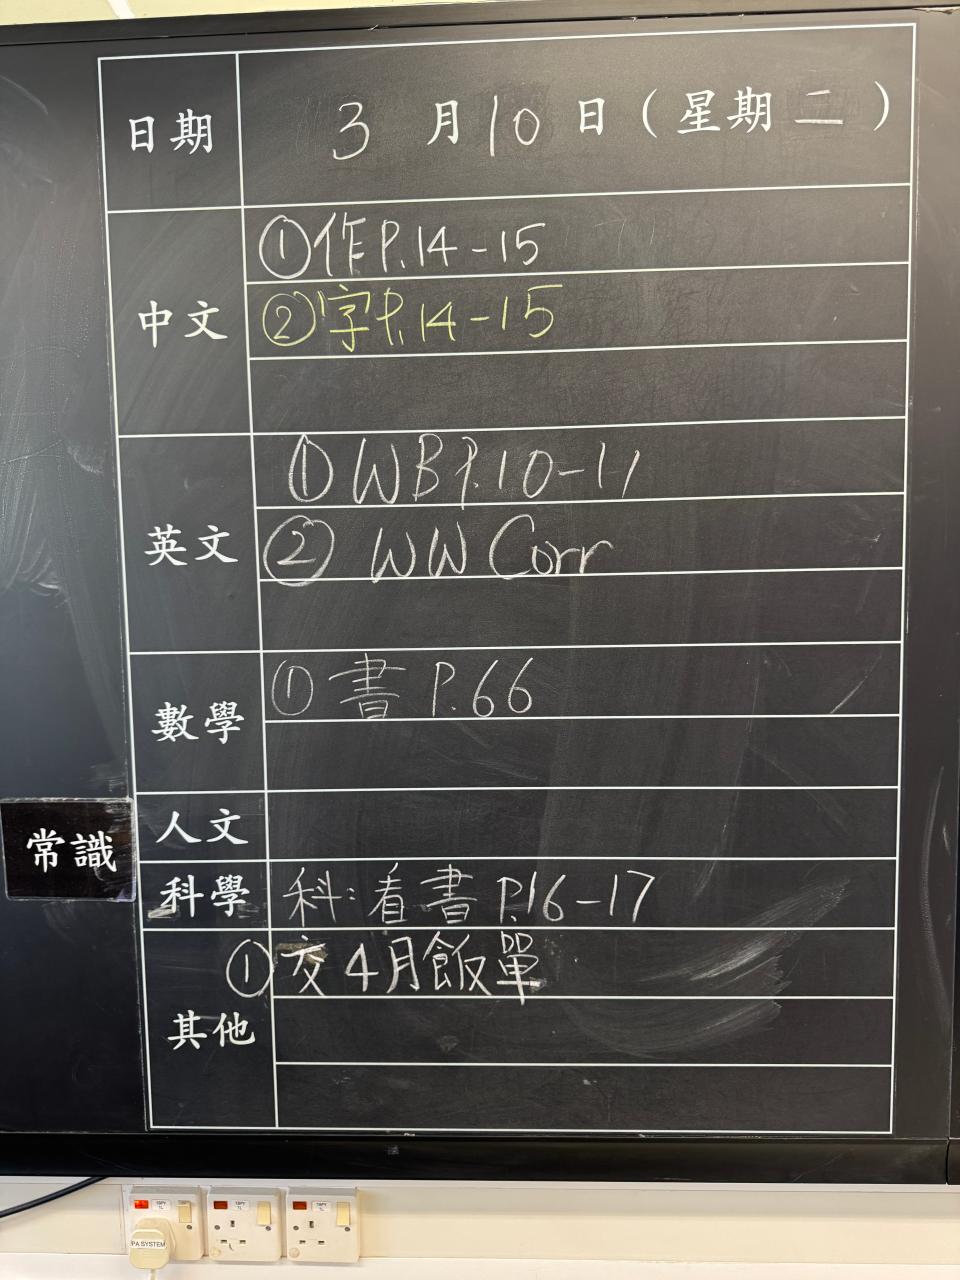 日期 3月10日（星期二）
中文 ①作P.14-15
②字P.14-15
英文 ①WB P.10-11
② WW Corr
數學 ① 書 P.66
人文
常識
科學 科：看書 P.16-17
其他 ①交4月飯單
PA SYSTEM